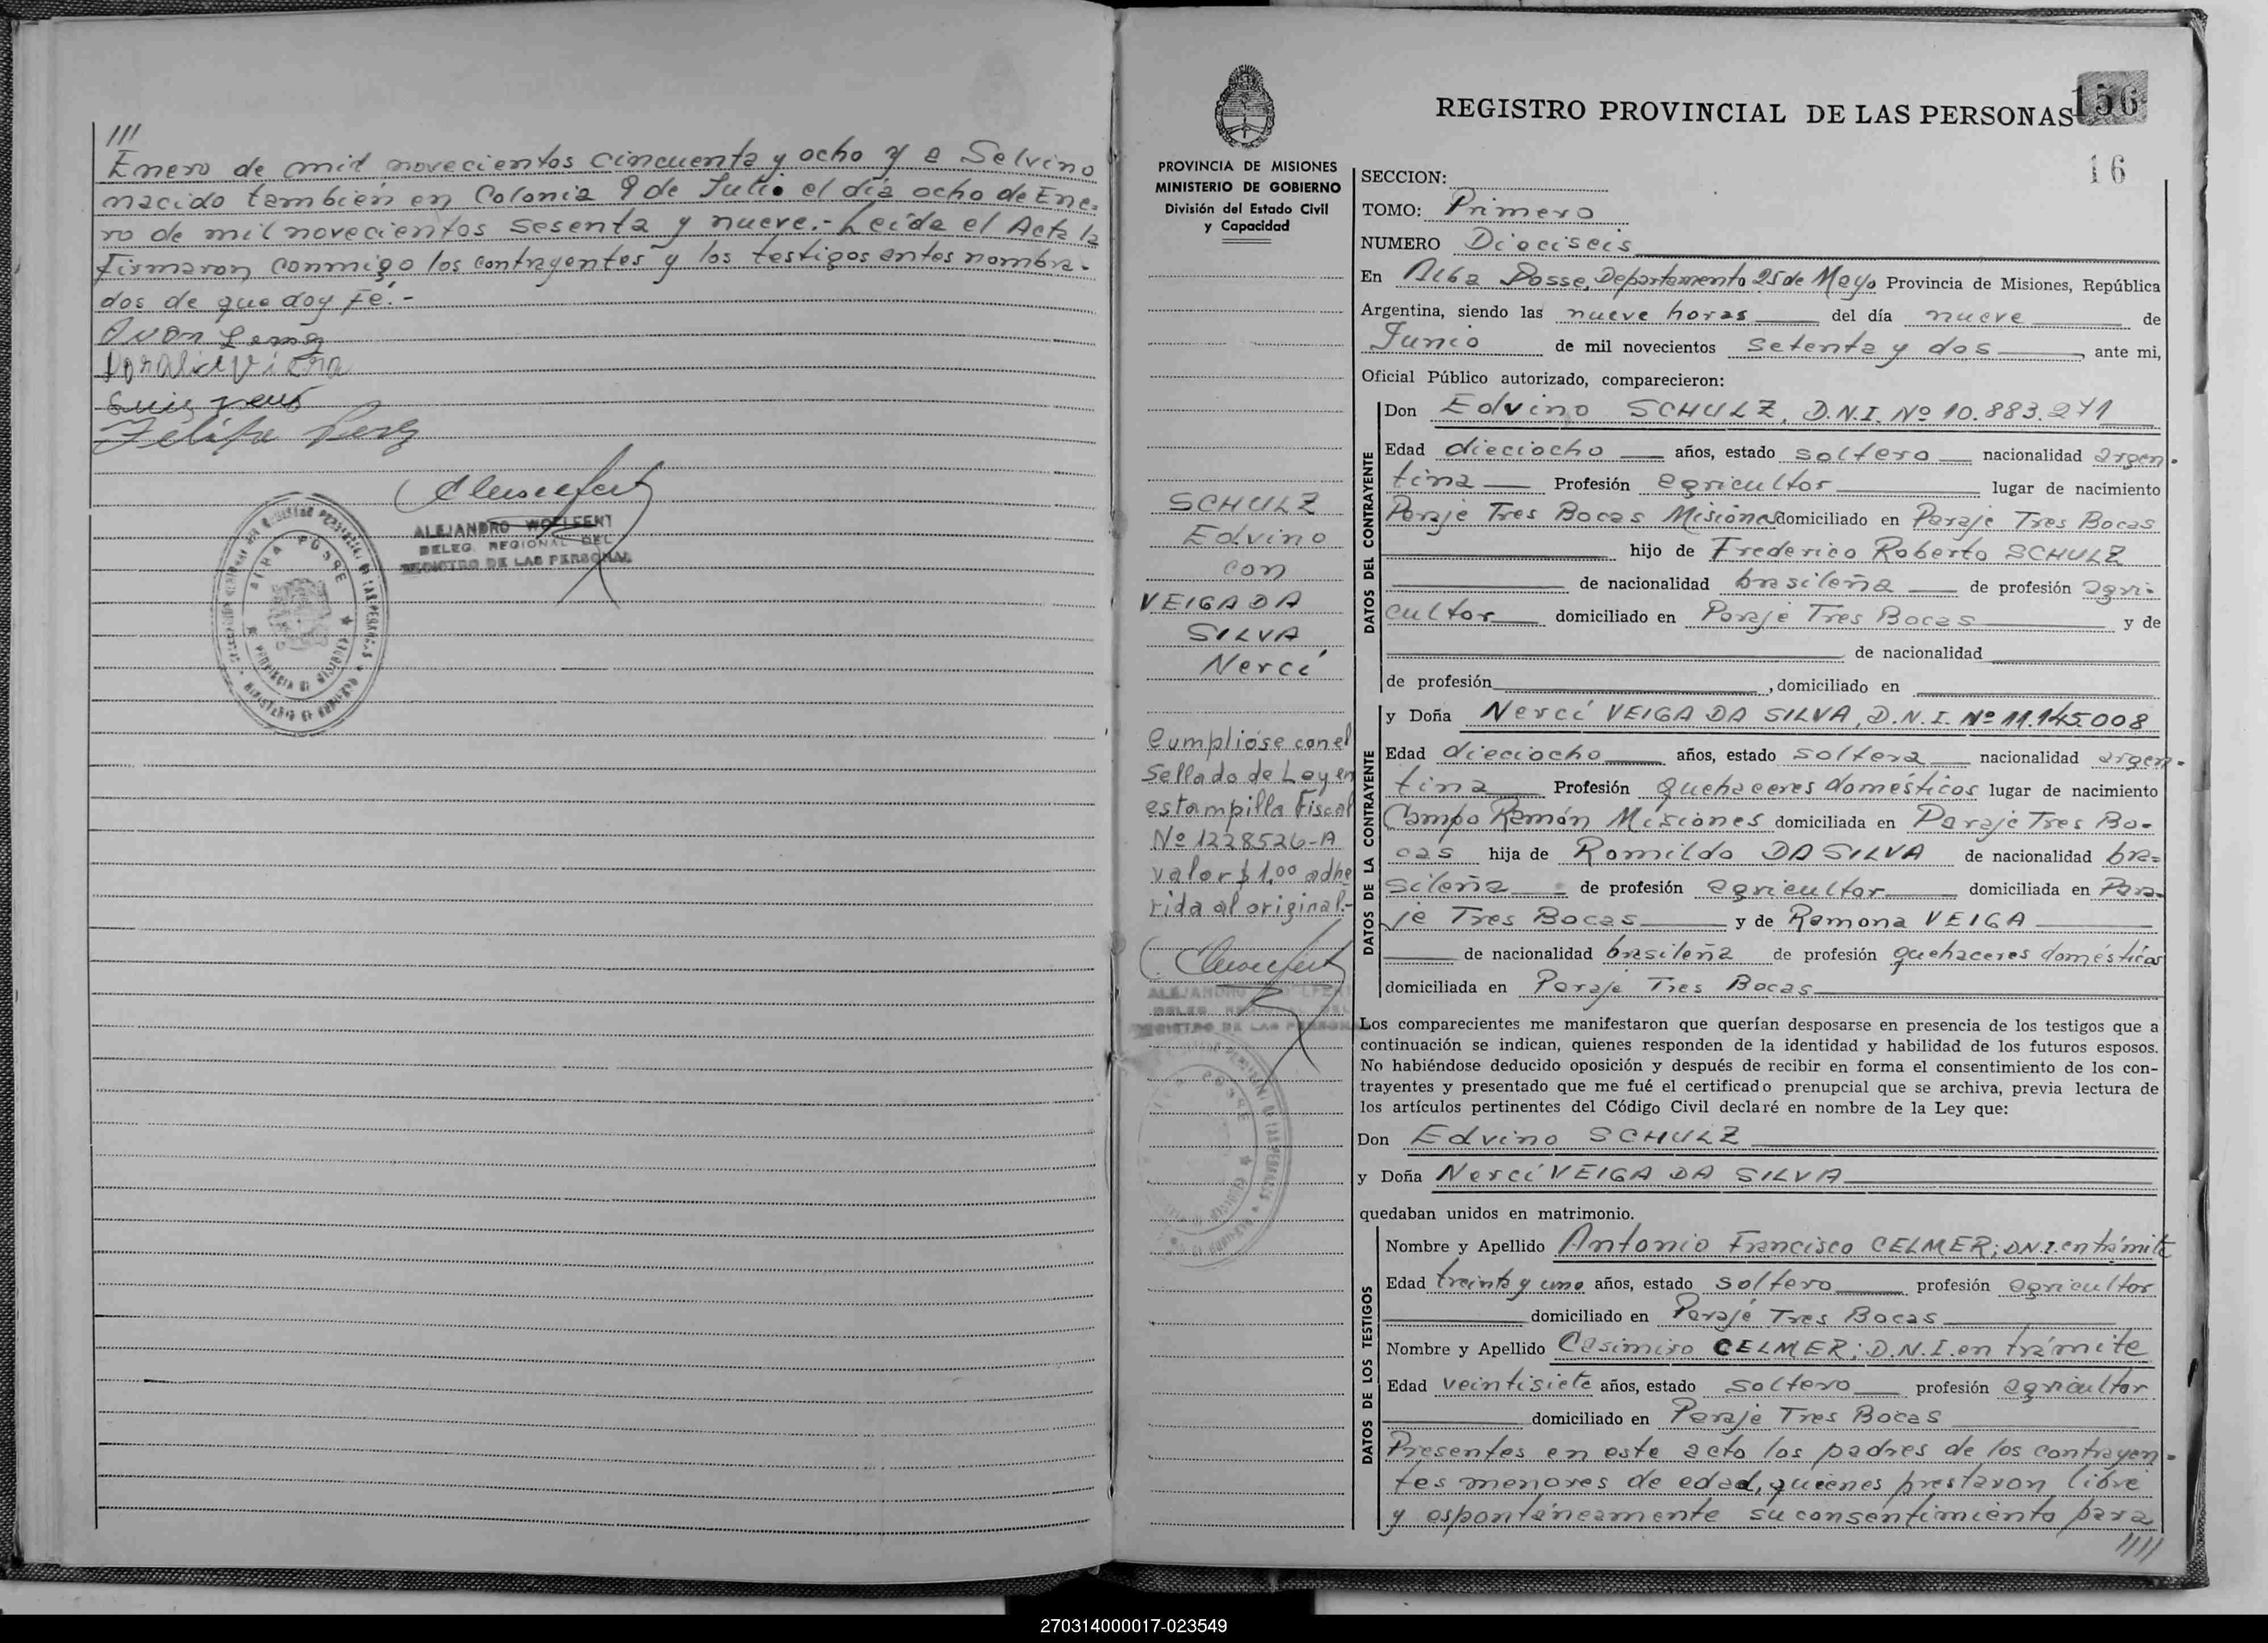 ///
Enero de mil novecientos cincuenta y ocho y a Selvino
nacido también en Colonia 9 de Julio el día ocho de Ene-
ro de mil novecientos sesenta y nueve.- Leída el Acta la
firmaron conmigo los contrayentes y los testigos antes nombra-
dos de que doy Fé.-
ALEJANDRO WOLFFENT
DELEG. REGIONAL DEL
REGISTRO DE LAS PERSONAS
REGISTRO PROVINCIAL DE LAS PERSONAS
156
16
PROVINCIA DE MISIONES
MINISTERIO DE GOBIERNO
División del Estado Civil
y Capacidad
SCHULZ
Edvino
con
VEIGA DA
SILVA
Nercí
Cumplióse con el
Sellado de Ley en
estampilla Fiscal
Nº 1228526-A
valor $ 1,00 adhe
rida al original.-
SECCION:
TOMO: Primero
NUMERO Dieciseis
En Alba Posse, Departamento 25 de Mayo Provincia de Misiones, República
Argentina, siendo las nueve horas del día nueve de
Junio de mil novecientos setenta y dos, ante mi,
Oficial Público autorizado, comparecieron:
DATOS DEL CONTRAYENTE
Don Edvino SCHULZ, D.N.I. Nº 10.883.271
Edad dieciocho años, estado soltero nacionalidad argen-
tina Profesión agricultor lugar de nacimiento
Paraje Tres Bocas Misiones domiciliado en Paraje Tres Bocas
hijo de Frederico Roberto SCHULZ
de nacionalidad brasileña de profesión agri-
cultor domiciliado en Paraje Tres Bocas y de
de nacionalidad
de profesión , domiciliado en
DATOS DE LA CONTRAYENTE
y Doña Nercí VEIGA DA SILVA, D.N.I. Nº 11.145.008
Edad dieciocho años, estado soltera nacionalidad argen-
tina Profesión quehaceres domésticos lugar de nacimiento
Campo Ramón Misiones domiciliada en Paraje Tres Bo-
cas hija de Romildo DA SILVA de nacionalidad bra-
sileña de profesión agricultor domiciliada en Para-
je Tres Bocas y de Ramona VEIGA
de nacionalidad brasileña de profesión quehaceres domésticos
domiciliada en Paraje Tres Bocas
Los comparecientes me manifestaron que querían desposarse en presencia de los testigos que a
continuación se indican, quienes responden de la identidad y habilidad de los futuros esposos.
No habiéndose deducido oposición y después de recibir en forma el consentimiento de los con-
trayentes y presentado que me fué el certificado prenupcial que se archiva, previa lectura de
los artículos pertinentes del Código Civil declaré en nombre de la Ley que:
Don Edvino SCHULZ
y Doña Nercí VEIGA DA SILVA
quedaban unidos en matrimonio.
DATOS DE LOS TESTIGOS
Nombre y Apellido Antonio Francisco CELMER; D.N.I. en trámite
Edad treinta y uno años, estado soltero profesión agricultor
domiciliado en Paraje Tres Bocas
Nombre y Apellido Casimiro CELMER; D.N.I. en trámite
Edad veintisiete años, estado soltero profesión agricultor
domiciliado en Paraje Tres Bocas
Presentes en este acto los padres de los contrayen-
tes menores de edad, quienes prestaron libre
y espontáneamente su consentimiento para
////
270314000017-023549